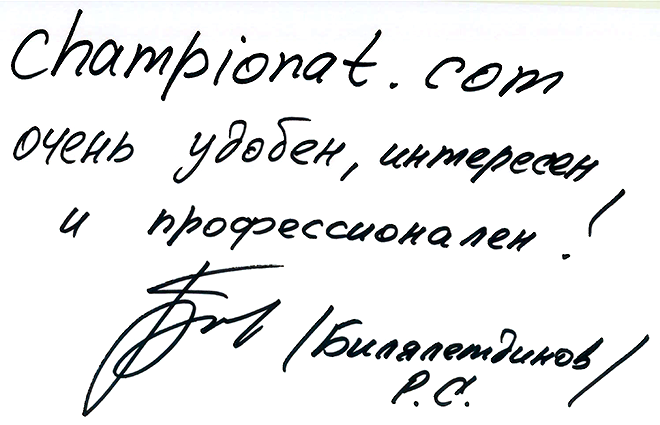 championat.com
очень удобен, интересен
и профессионален!
/Билялетдинов/
Р.С.